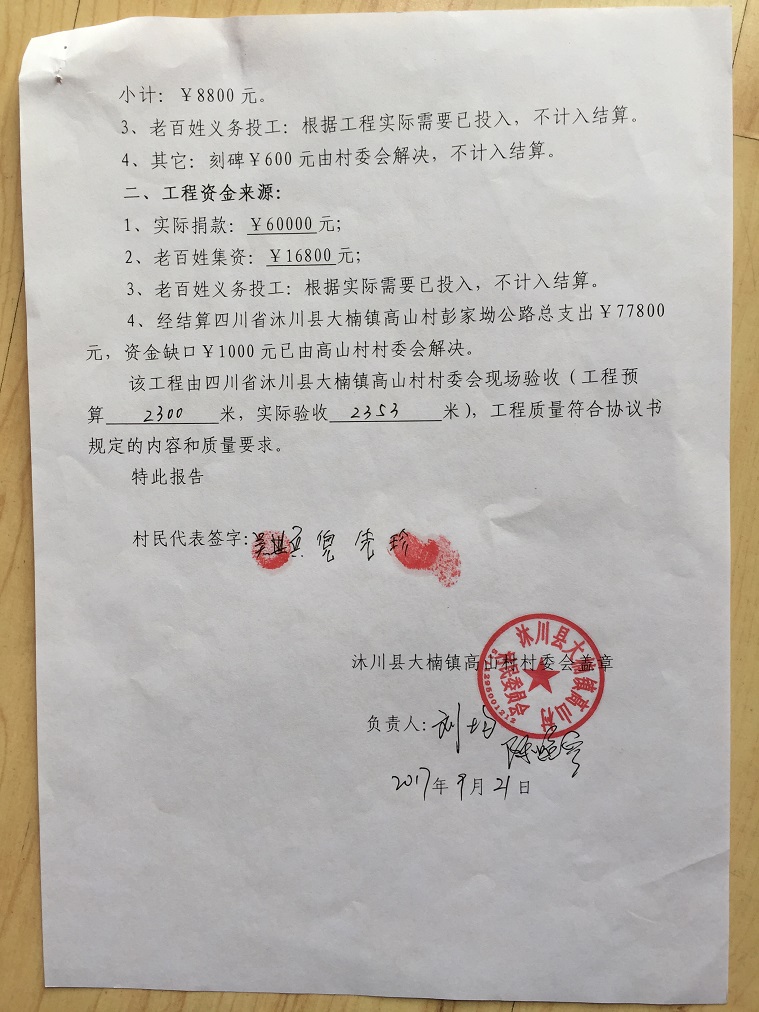 小计：￥8800元。
3、老百姓义务投工：根据工程实际需要已投入，不计入结算。
4、其它：刻碑￥600元由村委会解决，不计入结算。
二、工程资金来源：
1、实际捐款：￥60000元；
2、老百姓集资：￥16800元；
3、老百姓义务投工：根据实际需要已投入，不计入结算。
4、经结算四川省沐川县大楠镇高山村彭家坳公路总支出￥77800
元，资金缺口￥1000元已由高山村村委会解决。
该工程由四川省沐川县大楠镇高山村村委会现场验收（工程预
算2300米，实际验收2353米），工程质量符合协议书
规定的内容和质量要求。
特此报告
村民代表签字：倪先珍
沐川县大楠镇高山村村委会盖章
沐川县大楠镇高山村
村民委员会
负责人：刘均
2017年9月21日